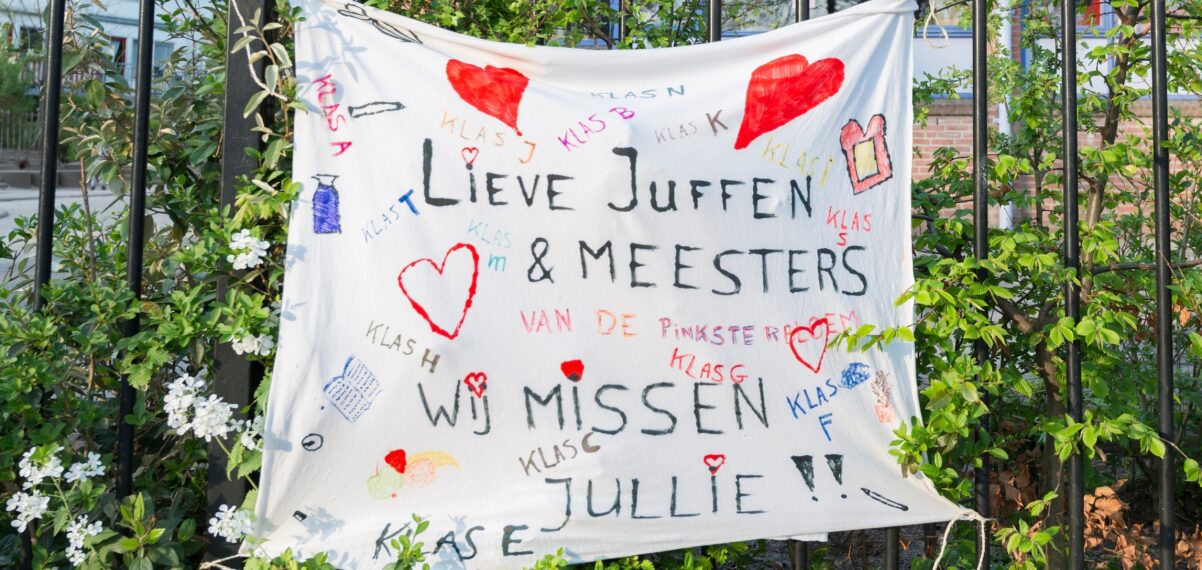 KLAS N
KLAS A
KLAS J
KLAS B
KLAS K
KLAS
LIEVE JUFFEN
KLAS T
KLAS M
KLAS S
& MEESTERS
VAN DE PINKSTERBLOEM
KLAS H
KLAS G
WIJ MISSEN
KLAS F
KLAS C
JULLIE !!
KLAS E